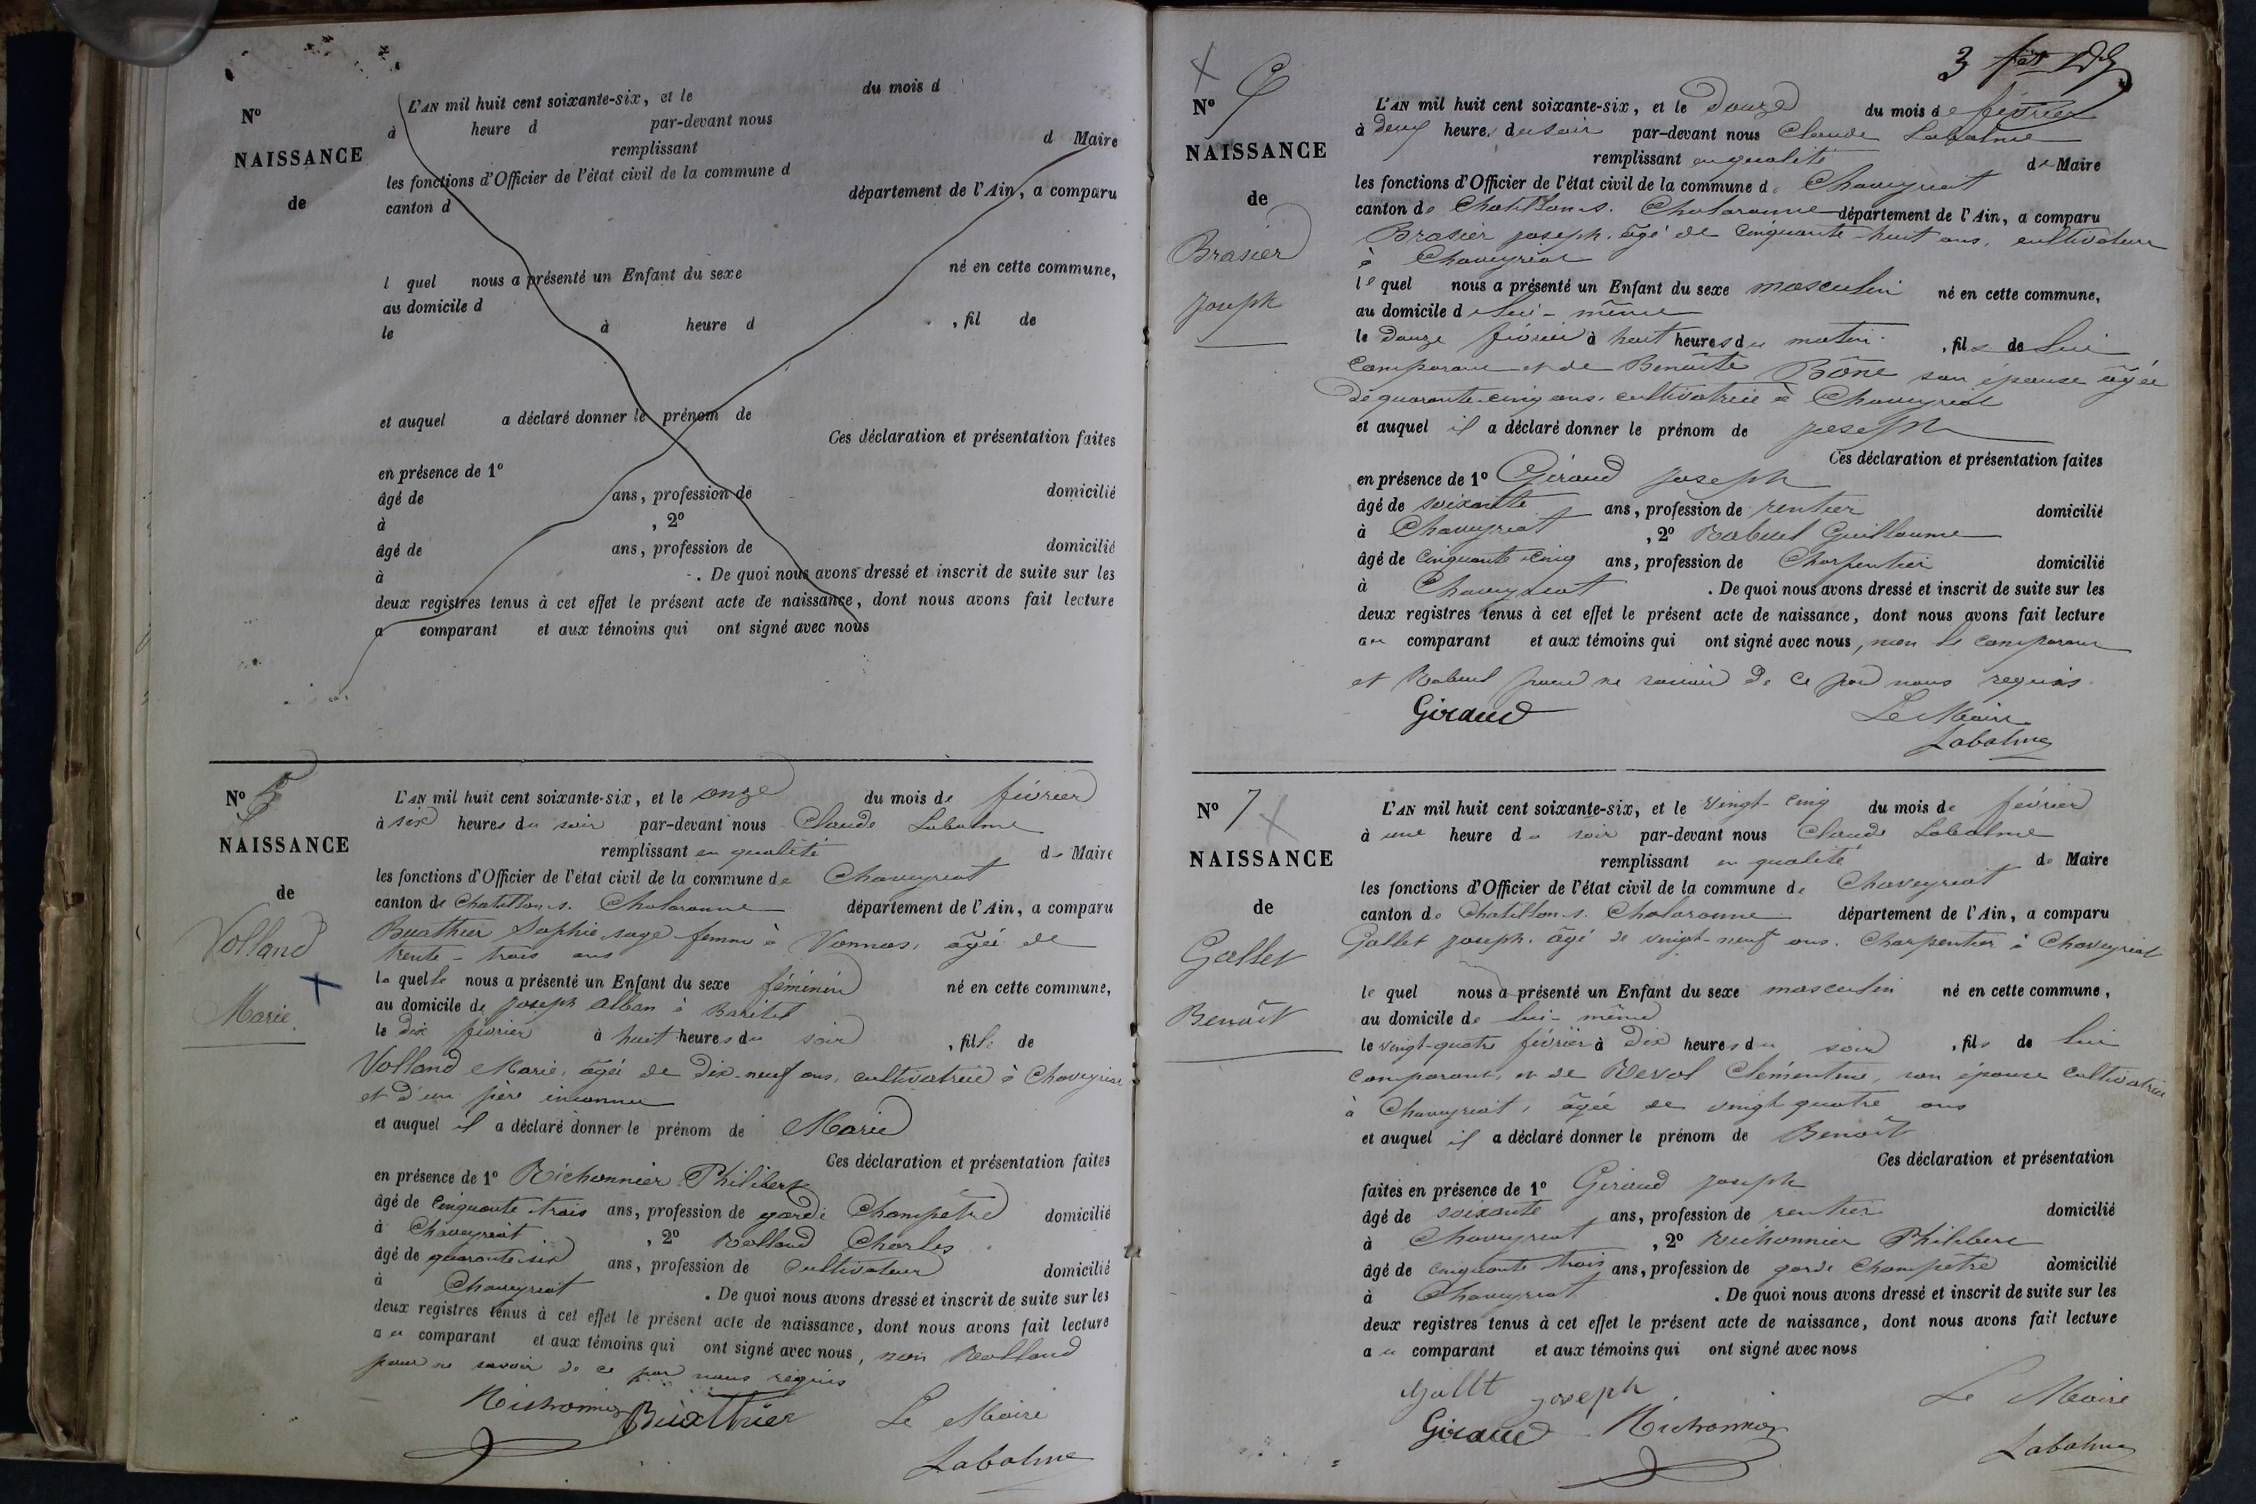 N°
NAISSANCE
de
L'AN mil huit cent soixante-six, et le du mois d
à heure d par-devant nous
remplissant d Maire
les fonctions d'Officier de l'état civil de la commune d
canton d département de l'Ain, a comparu
l quel nous a présenté un Enfant du sexe né en cette commune,
au domicile d
le à heure d , fil de
et auquel a déclaré donner le prénom de
Ces déclaration et présentation faites
en présence de 1°
âgé de ans, profession de domicilié
à , 2°
âgé de ans, profession de domicilié
à . De quoi nous avons dressé et inscrit de suite sur les
deux registres tenus à cet effet le présent acte de naissance, dont nous avons fait lecture
a comparant et aux témoins qui ont signé avec nous
N° 5
NAISSANCE
de
Volland
Marie
L'AN mil huit cent soixante-six, et le onze du mois de février
à six heures du soir par-devant nous Claude Labalme
remplissant en qualité de Maire
les fonctions d'Officier de l'état civil de la commune de Chaveyriat
canton de Chatillon s. Chalaronne département de l'Ain, a comparu
Buathier Sophie sage-femme à Vonnas, âgée de
trente-trois ans
laquelle nous a présenté un Enfant du sexe féminin né en cette commune,
au domicile de joseph Alban à
le dix février à huit heures du soir , fille de
Volland Marie, âgée de dix-neuf ans, cultivatrice à Chaveyriat
et d'un père inconnu
et auquel il a déclaré donner le prénom de Marie
Ces déclaration et présentation faites
en présence de 1° Richonnier Philibert
âgé de cinquante-trois ans, profession de garde Champêtre domicilié
à Chaveyriat , 2° Rolland Charles
âgé de quarante-six ans, profession de cultivateur domicilié
à Chaveyriat . De quoi nous avons dressé et inscrit de suite sur les
deux registres tenus à cet effet le présent acte de naissance, dont nous avons fait lecture
au comparant et aux témoins qui ont signé avec nous, non Rolland
pour ne savoir de ce par nous requis
Richonnier Buathier Le Maire
Labalme
3
N° 6
NAISSANCE
de
Brasier
joseph
L'AN mil huit cent soixante-six, et le douze du mois de février
à deux heures du soir par-devant nous Claude Labalme
remplissant en qualité de Maire
les fonctions d'Officier de l'état civil de la commune de Chaveyriat
canton de Chatillon s. Chalaronne département de l'Ain, a comparu
Brasier joseph, âgé de cinquante-huit ans, cultivateur
à Chaveyriat
lequel nous a présenté un Enfant du sexe masculin né en cette commune,
au domicile de lui-même
le douze février à huit heures du matin , fils de lui
comparant et de Benoite Bône son épouse âgée
de quarante-cinq ans, cultivatrice à Chaveyriat
et auquel il a déclaré donner le prénom de joseph
Ces déclaration et présentation faites
en présence de 1° Giraud joseph
âgé de soixante ans, profession de rentier domicilié
à Chaveyriat , 2° Rabuel Guillaume
âgé de cinquante-cinq ans, profession de Charpentier domicilié
à Chaveyriat . De quoi nous avons dressé et inscrit de suite sur les
deux registres tenus à cet effet le présent acte de naissance, dont nous avons fait lecture
au comparant et aux témoins qui ont signé avec nous, non le comparant
et Rabuel pour ne savoir de ce par nous requis
Giraud Le Maire
Labalme
N° 7
NAISSANCE
de
Gallet
Benoît
L'AN mil huit cent soixante-six, et le vingt-cinq du mois de février
à une heure du soir par-devant nous Claude Labalme
remplissant en qualité de Maire
les fonctions d'Officier de l'état civil de la commune de Chaveyriat
canton de Chatillon s. Chalaronne département de l'Ain, a comparu
Gallet joseph, âgé de vingt-neuf ans, Charpentier à Chaveyriat
lequel nous a présenté un Enfant du sexe masculin né en cette commune,
au domicile de lui-même
le vingt-quatre février à dix heures du soir , fils de lui
comparant, et de Revol Clémentine, son épouse cultivatrice
à Chaveyriat, âgée de vingt quatre ans
et auquel il a déclaré donner le prénom de Benoît
Ces déclaration et présentation
faites en présence de 1° Giraud joseph
âgé de soixante ans, profession de rentier domicilié
à Chaveyriat , 2° Richonnier Philibert
âgé de cinquante trois ans, profession de garde Champêtre domicilié
à Chaveyriat . De quoi nous avons dressé et inscrit de suite sur les
deux registres tenus à cet effet le présent acte de naissance, dont nous avons fait lecture
au comparant et aux témoins qui ont signé avec nous
Gallt joseph Le Maire
Giraud Richonnier Labalme